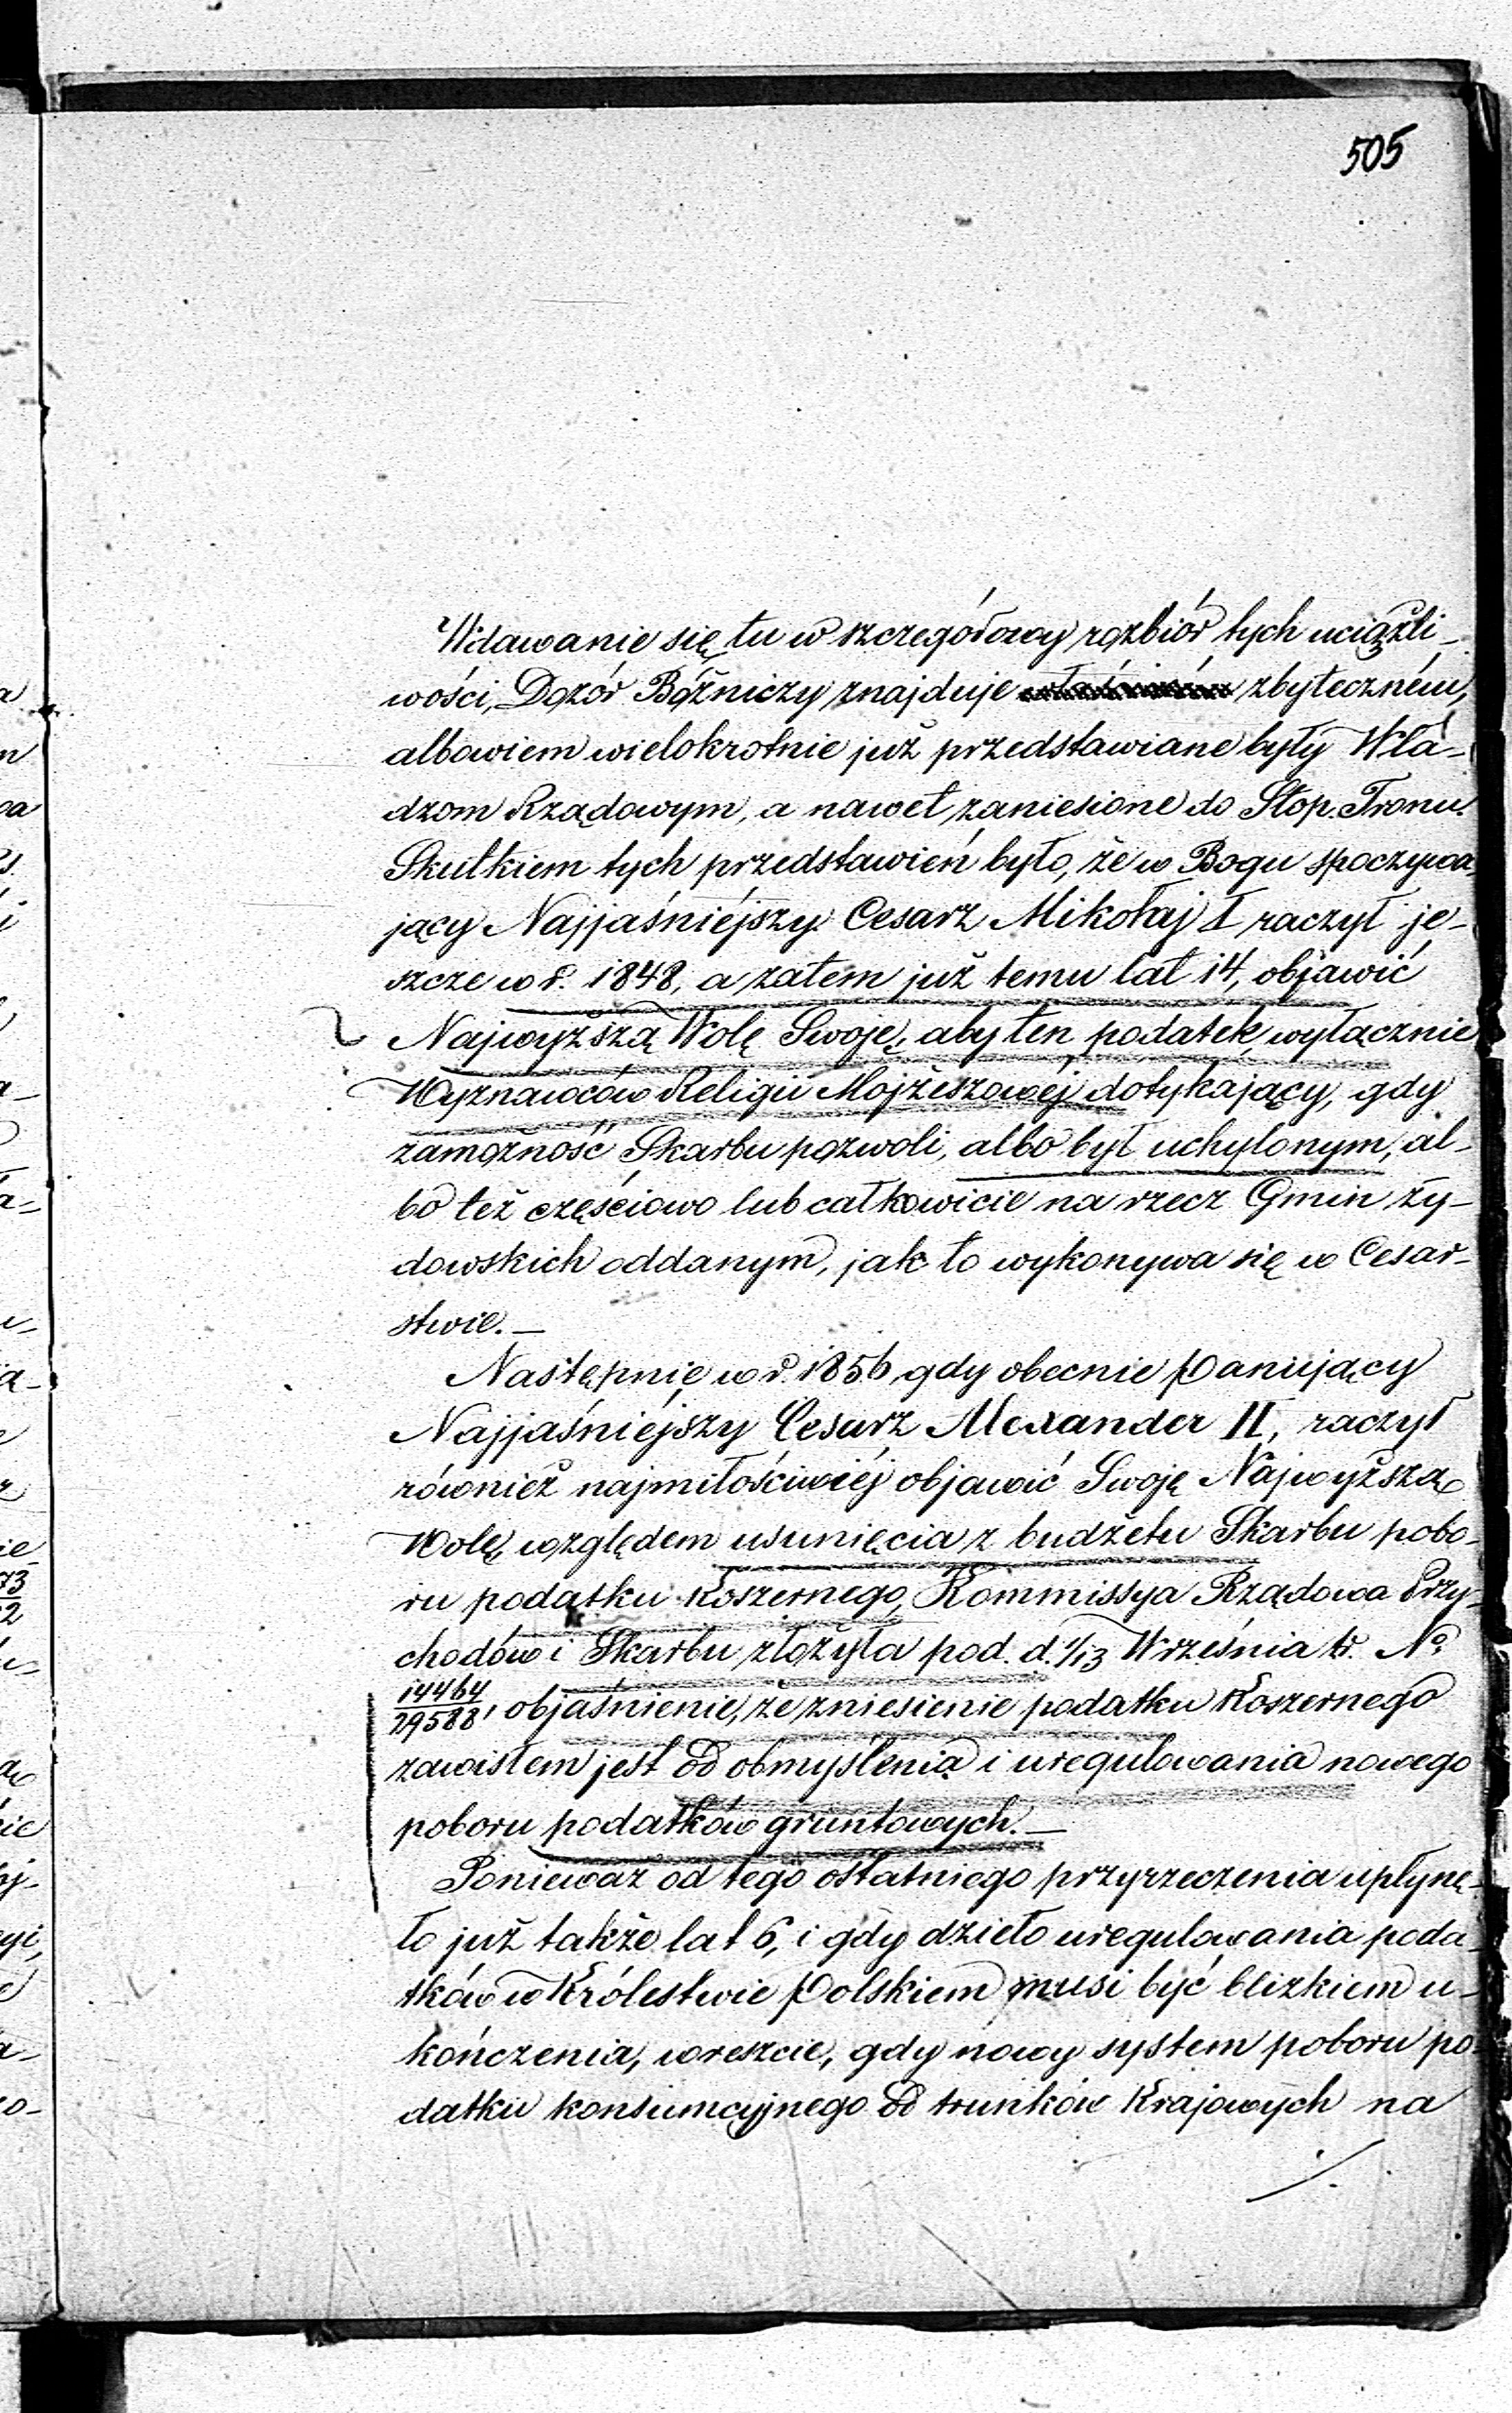 505
Wdawanie się tu w szczegółowy rozbiór tych uciążli-
wości, Dozór Bóżniczy znajduje zbyteczném,
albowiem wielokrotnie już przedstawiane były Wła-
dzom Rządowym, a nawet zaniesione do Stop Tronu.
Skutkiem tych przedstawień było, że w Bogu spoczywa
jący Najjaśniéjszy Cesarz Mikołaj I raczył je-
szcze w r. 1848, a zatem już temu lat 14, objawić
Najwyższą Wolę Swoję, aby ten podatek wyłącznie
Wyznawców Religii Mojżeszowéj dotykający, gdy
zamożność Skarbu pozwoli, albo był uchylonym, al-
bo też częściowo lub całkowicie na rzecz Gmin ży-
dowskich oddanym, jak to wykonywa się w Cesar-
stwie. —
Następnie w r. 1856 gdy obecnie Panujący
Najjaśniéjszy Cesarz Alexander II, raczył
również najmiłościwiéj objawić Swoję Najwyższą
Wolę, względem usunięcia z budżetu Skarbu pobo-
ru podatku koszernego, Kommissya Rządowa Przy-
chodów i Skarbu złożyła pod d. 1/13 Września t.r. No
14464/29588, objaśnienie, że zniesienie podatku koszernego
zawisłem jest od obmyślenia i uregulowania nowego
poboru podatków gruntowych. —
Ponieważ od tego ostatniego przyrzeczenia upłynę-
ło już także lat 6, i gdy dzieło uregulowania poda-
tków w Królestwie Polskiem musi być blizkiem u-
kończenia, wreszcie, gdy nowy system poboru po-
datku konsumcyjnego od trunków Krajowych na